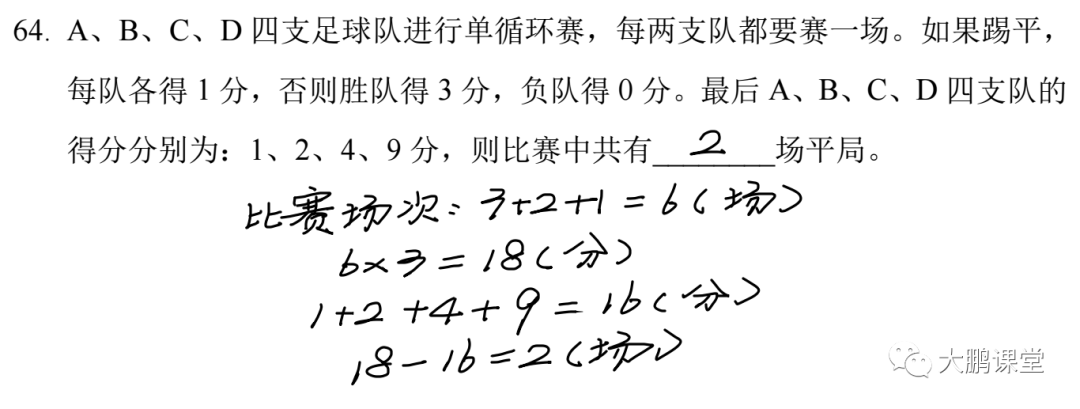 64. A、B、C、D 四支足球队进行单循环赛，每两支队都要赛一场。如果踢平，
每队各得 1 分，否则胜队得 3 分，负队得 0 分。最后 A、B、C、D 四支队的
得分分别为：1、2、4、9 分，则比赛中共有 2 场平局。
比赛场次：3+2+1=6（场）
6×3=18（分）
1+2+4+9=16（分）
18-16=2（场）
大鹏课堂